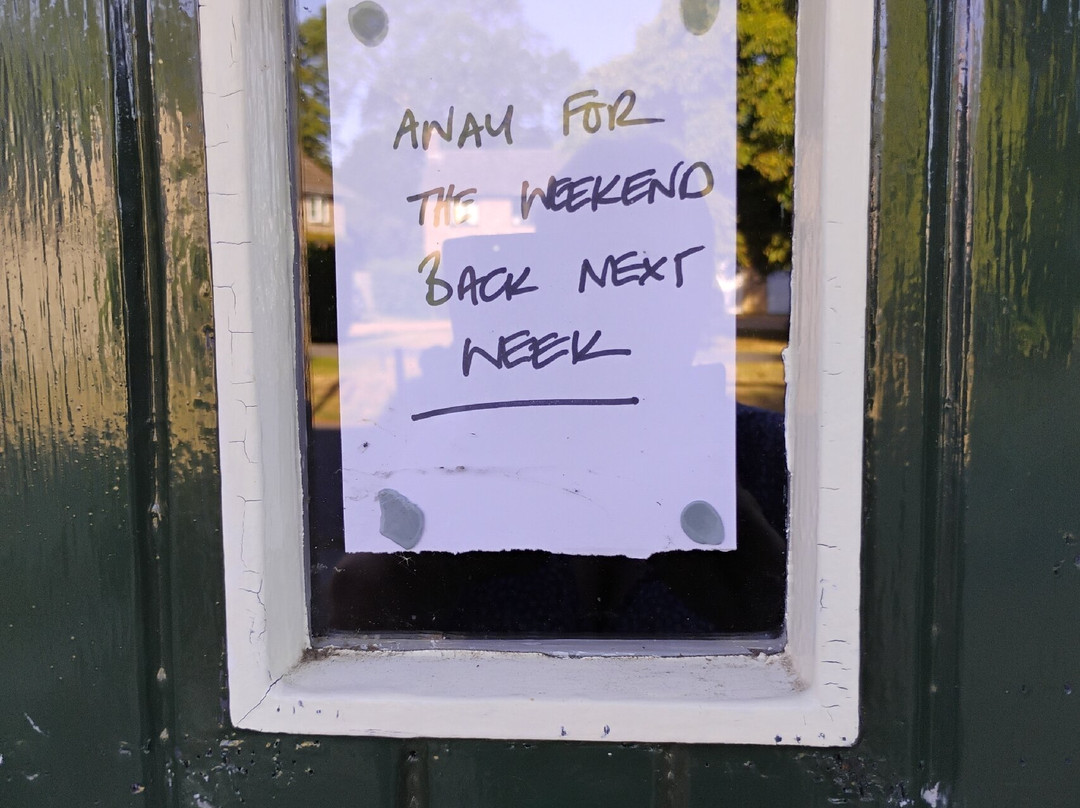 AWAY FOR
THE WEEKEND
BACK NEXT
WEEK